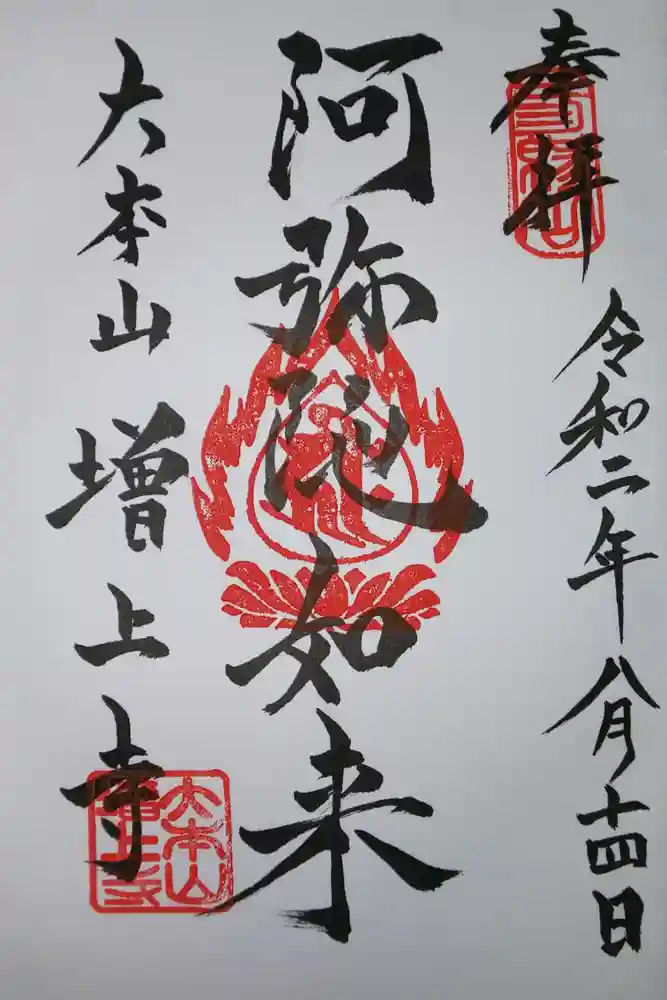 奉拝
令和二年八月十四日
阿弥陀如来
大本山増上寺
大本山